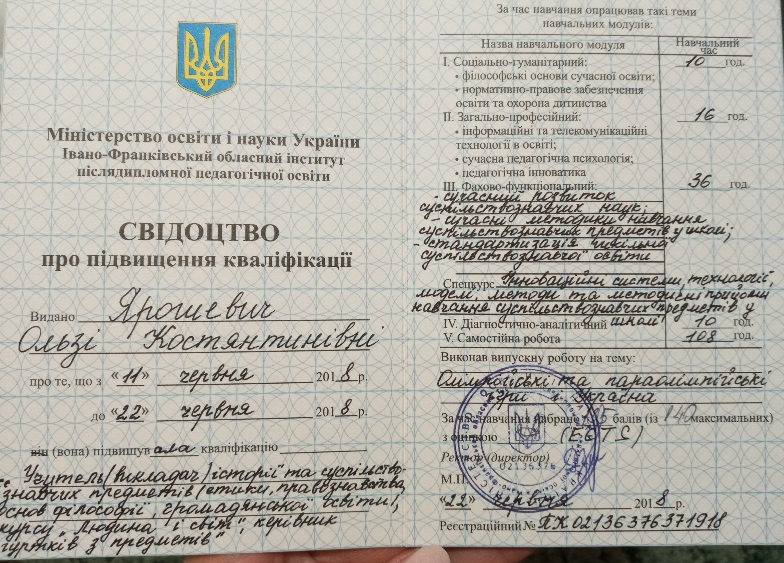 Міністерство освіти і науки України
Івано-Франківський обласний інститут
післядипломної педагогічної освіти
СВІДОЦТВО
про підвищення кваліфікації
Видано Ярошевич
Ользі Костянтинівні
про те, що з «11» червня 2018 р.
до «22» червня 2018 р.
він (вона) підвищув ала кваліфікацію
Учитель (викладач) історії та суспільство-
знавчих предметів (етики, правознавства,
основ філософії, громадянської освіти,
курсу „Людина і світ", керівник
гуртків з предметів"
За час навчання опрацював такі теми
навчальних модулів:
Назва навчального модуля Навчальний час
І. Соціально-гуманітарний: 10 год.
• філософські основи сучасної освіти;
• нормативно-правове забезпечення
освіти та охорона дитинства
ІІ. Загально-професійний: 16 год.
• інформаційні та телекомунікаційні
технології в освіті;
• сучасна педагогічна психологія;
• педагогічна інноватика
ІІІ. Фахово-функціональний: 36 год.
- сучасний розвиток
суспільствознавчих наук;
- сучасні методики навчання
суспільствознавчих предметів у школі;
- стандартизація шкільної
суспільствознавчої освіти
Спецкурс Інноваційні системи, технології,
моделі, методи та методичні прийоми
навчання суспільствознавчих предметів у
школі
IV. Діагностично-аналітичний 10 год.
V. Самостійна робота 108 год.
Виконав випускну роботу на тему:
Олімпійські та параолімпійські
ігри і Україна
За час навчання набрав балів (із 140 максимальних)
з оцінкою (ECTS)
Ректор (директор)
М.П.
«22» червня 2018 р.
Реєстраційний № ПК 02136376371918
02136376